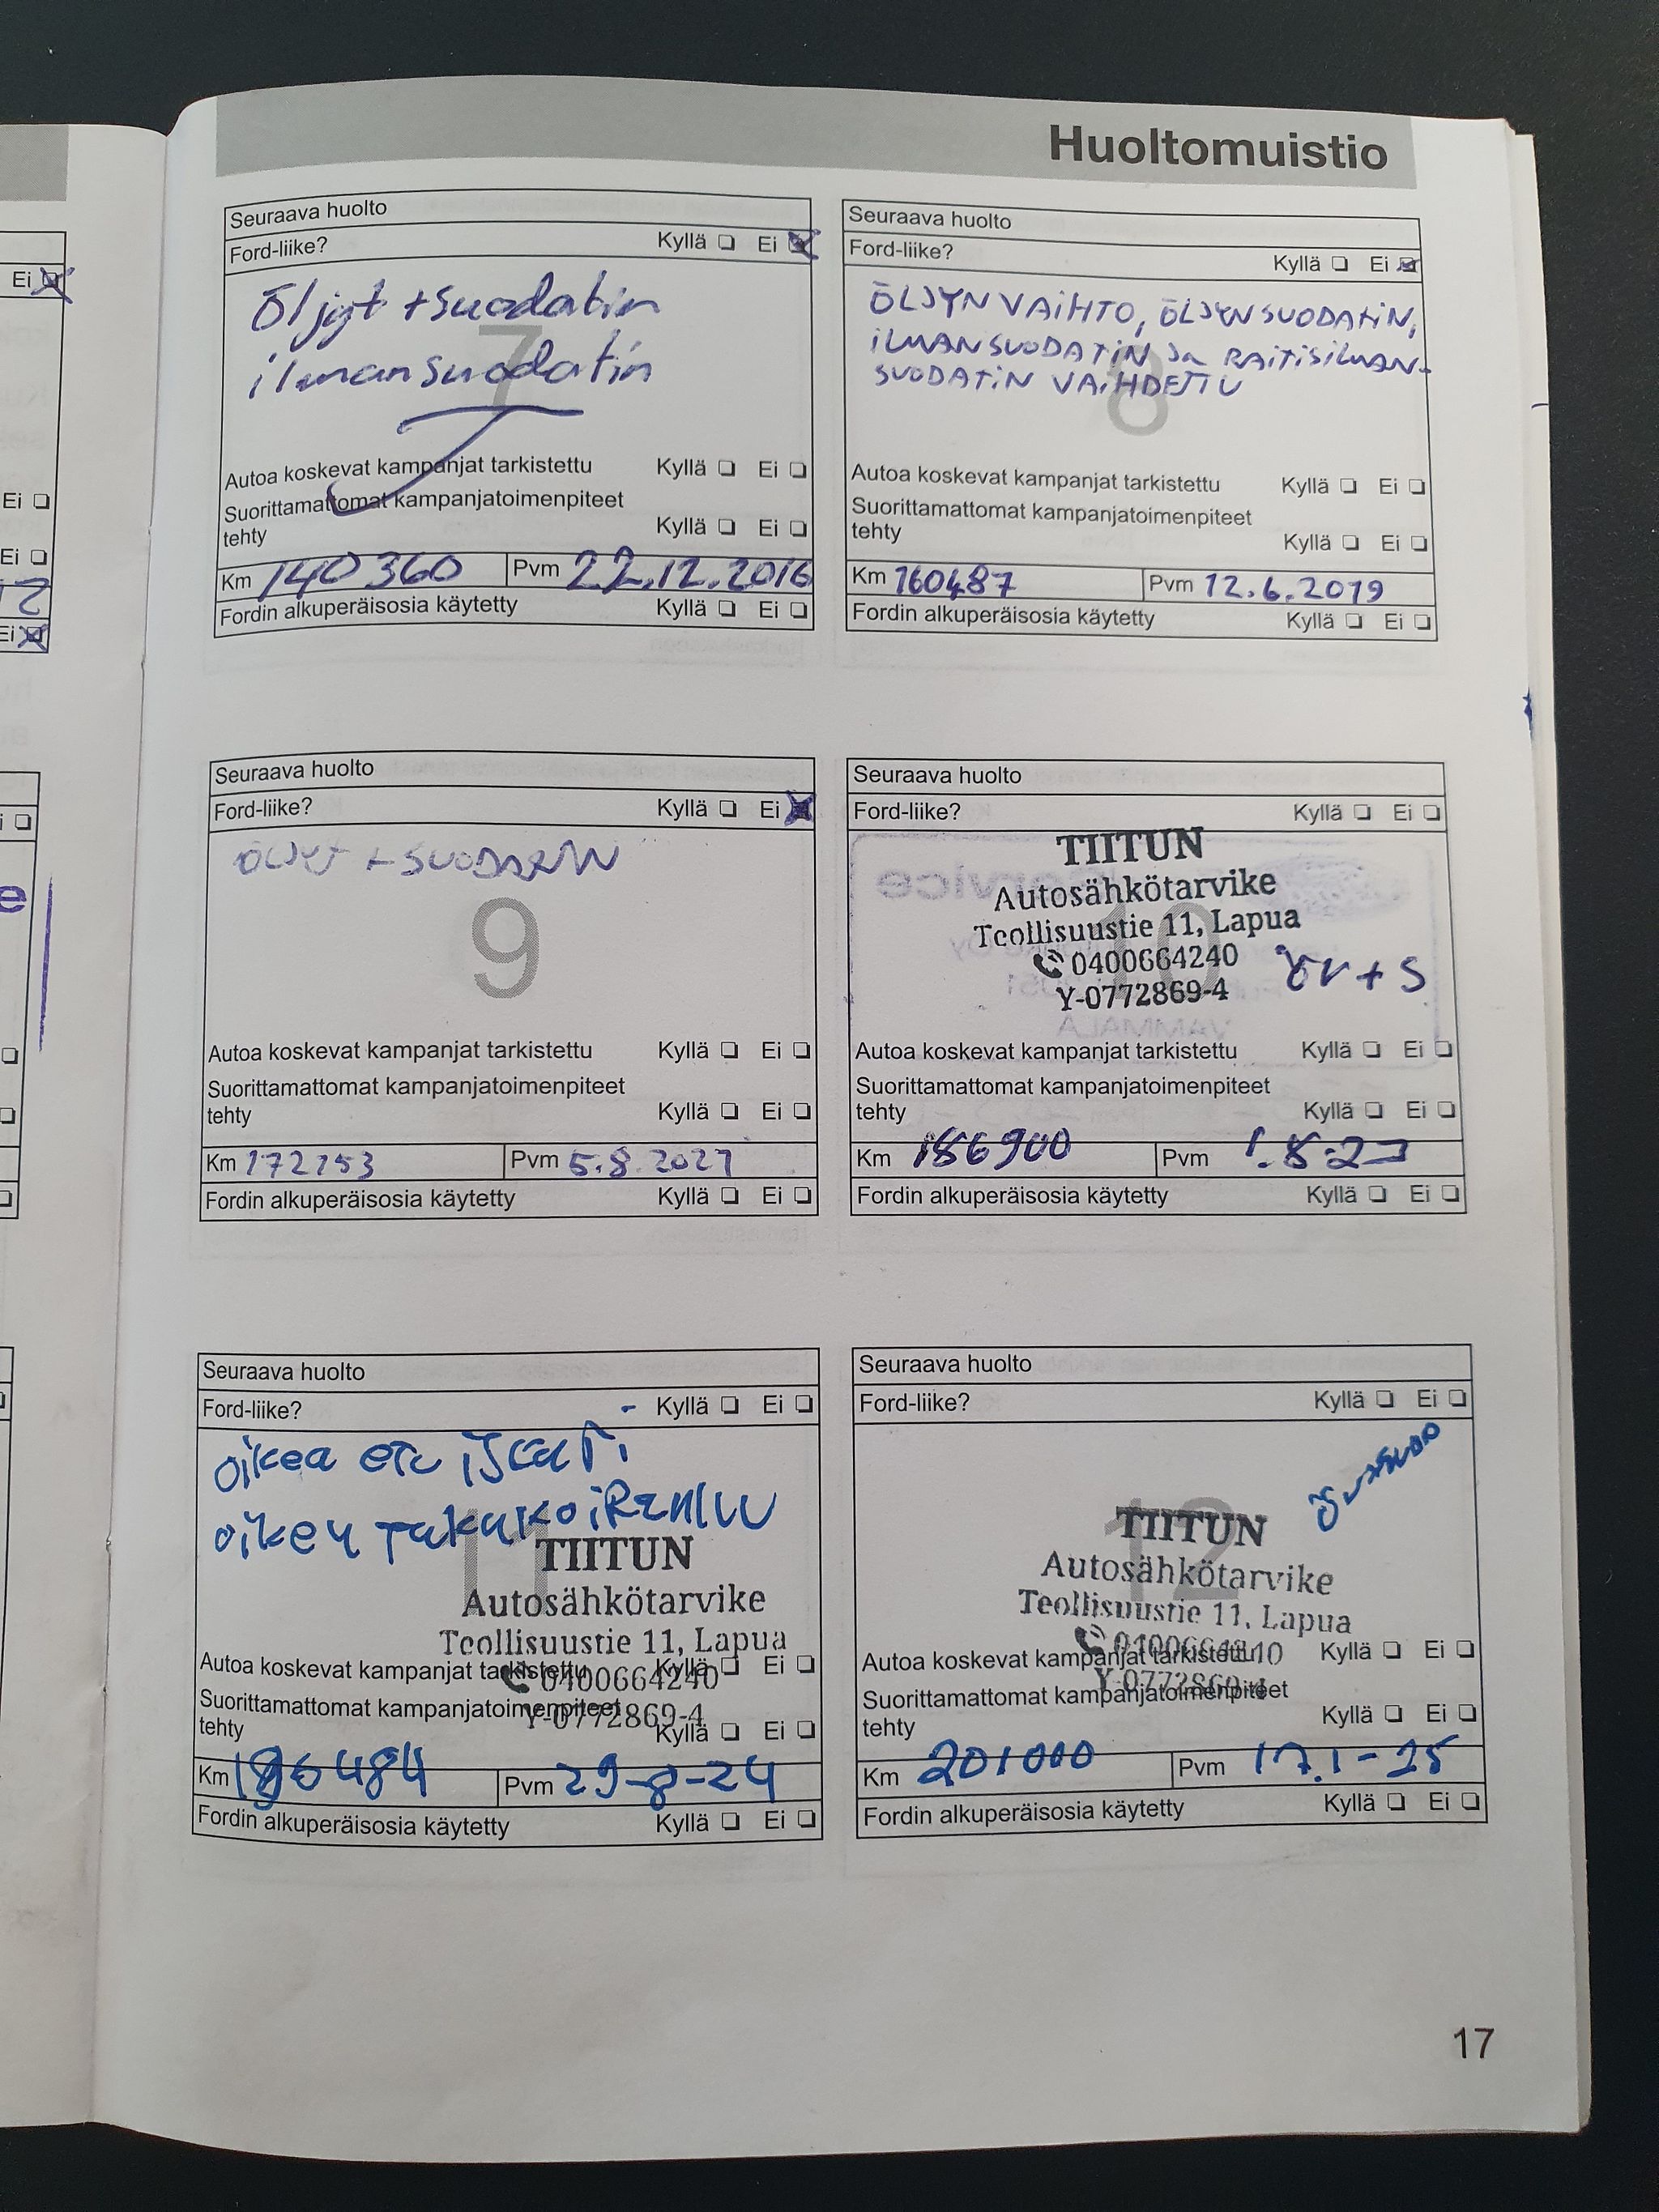 Huoltomuistio
Seuraava huolto
Ford-liike? Kyllä Ei
Öljyt + suodatin
ilmansuodatin
7
Autoa koskevat kampanjat tarkistettu Kyllä Ei
Suorittamattomat kampanjatoimenpiteet
tehty Kyllä Ei
Km 140 360 Pvm 22.12.2016
Fordin alkuperäisosia käytetty Kyllä Ei
Seuraava huolto
Ford-liike? Kyllä Ei
ÖLJYN VAIHTO, ÖLJYNSUODATIN,
ILMANSUODATIN JA RAITISILMAN-
SUODATIN VAIHDETTU
8
Autoa koskevat kampanjat tarkistettu Kyllä Ei
Suorittamattomat kampanjatoimenpiteet
tehty Kyllä Ei
Km 160487 Pvm 12.6.2019
Fordin alkuperäisosia käytetty Kyllä Ei
Seuraava huolto
Ford-liike? Kyllä Ei
ÖLJYT + SUODATIN
9
Autoa koskevat kampanjat tarkistettu Kyllä Ei
Suorittamattomat kampanjatoimenpiteet
tehty Kyllä Ei
Km 172153 Pvm 5.8.2021
Fordin alkuperäisosia käytetty Kyllä Ei
Seuraava huolto
Ford-liike? Kyllä Ei
TIITUN
Autosähkötarvike
Teollisuustie 11, Lapua
0400664240
Y-0772869-4
10
+ S
Autoa koskevat kampanjat tarkistettu Kyllä Ei
Suorittamattomat kampanjatoimenpiteet
tehty Kyllä Ei
Km 186900 Pvm 1.8.23
Fordin alkuperäisosia käytetty Kyllä Ei
Seuraava huolto
Ford-liike? Kyllä Ei
oikea etu iskari
oikea taka
11
TIITUN
Autosähkötarvike
Teollisuustie 11, Lapua
0400664240
Y-0772869-4
Autoa koskevat kampanjat tarkistettu Kyllä Ei
Suorittamattomat kampanjatoimenpiteet
tehty Kyllä Ei
Km 196484 Pvm 29-8-24
Fordin alkuperäisosia käytetty Kyllä Ei
Seuraava huolto
Ford-liike? Kyllä Ei
12
TIITUN
Autosähkötarvike
Teollisuustie 11, Lapua
0400664240
Y-0772869-4
Autoa koskevat kampanjat tarkistettu Kyllä Ei
Suorittamattomat kampanjatoimenpiteet
tehty Kyllä Ei
Km 201000 Pvm 17.1-25
Fordin alkuperäisosia käytetty Kyllä Ei
17
Ei
Ei
Ei
Ei